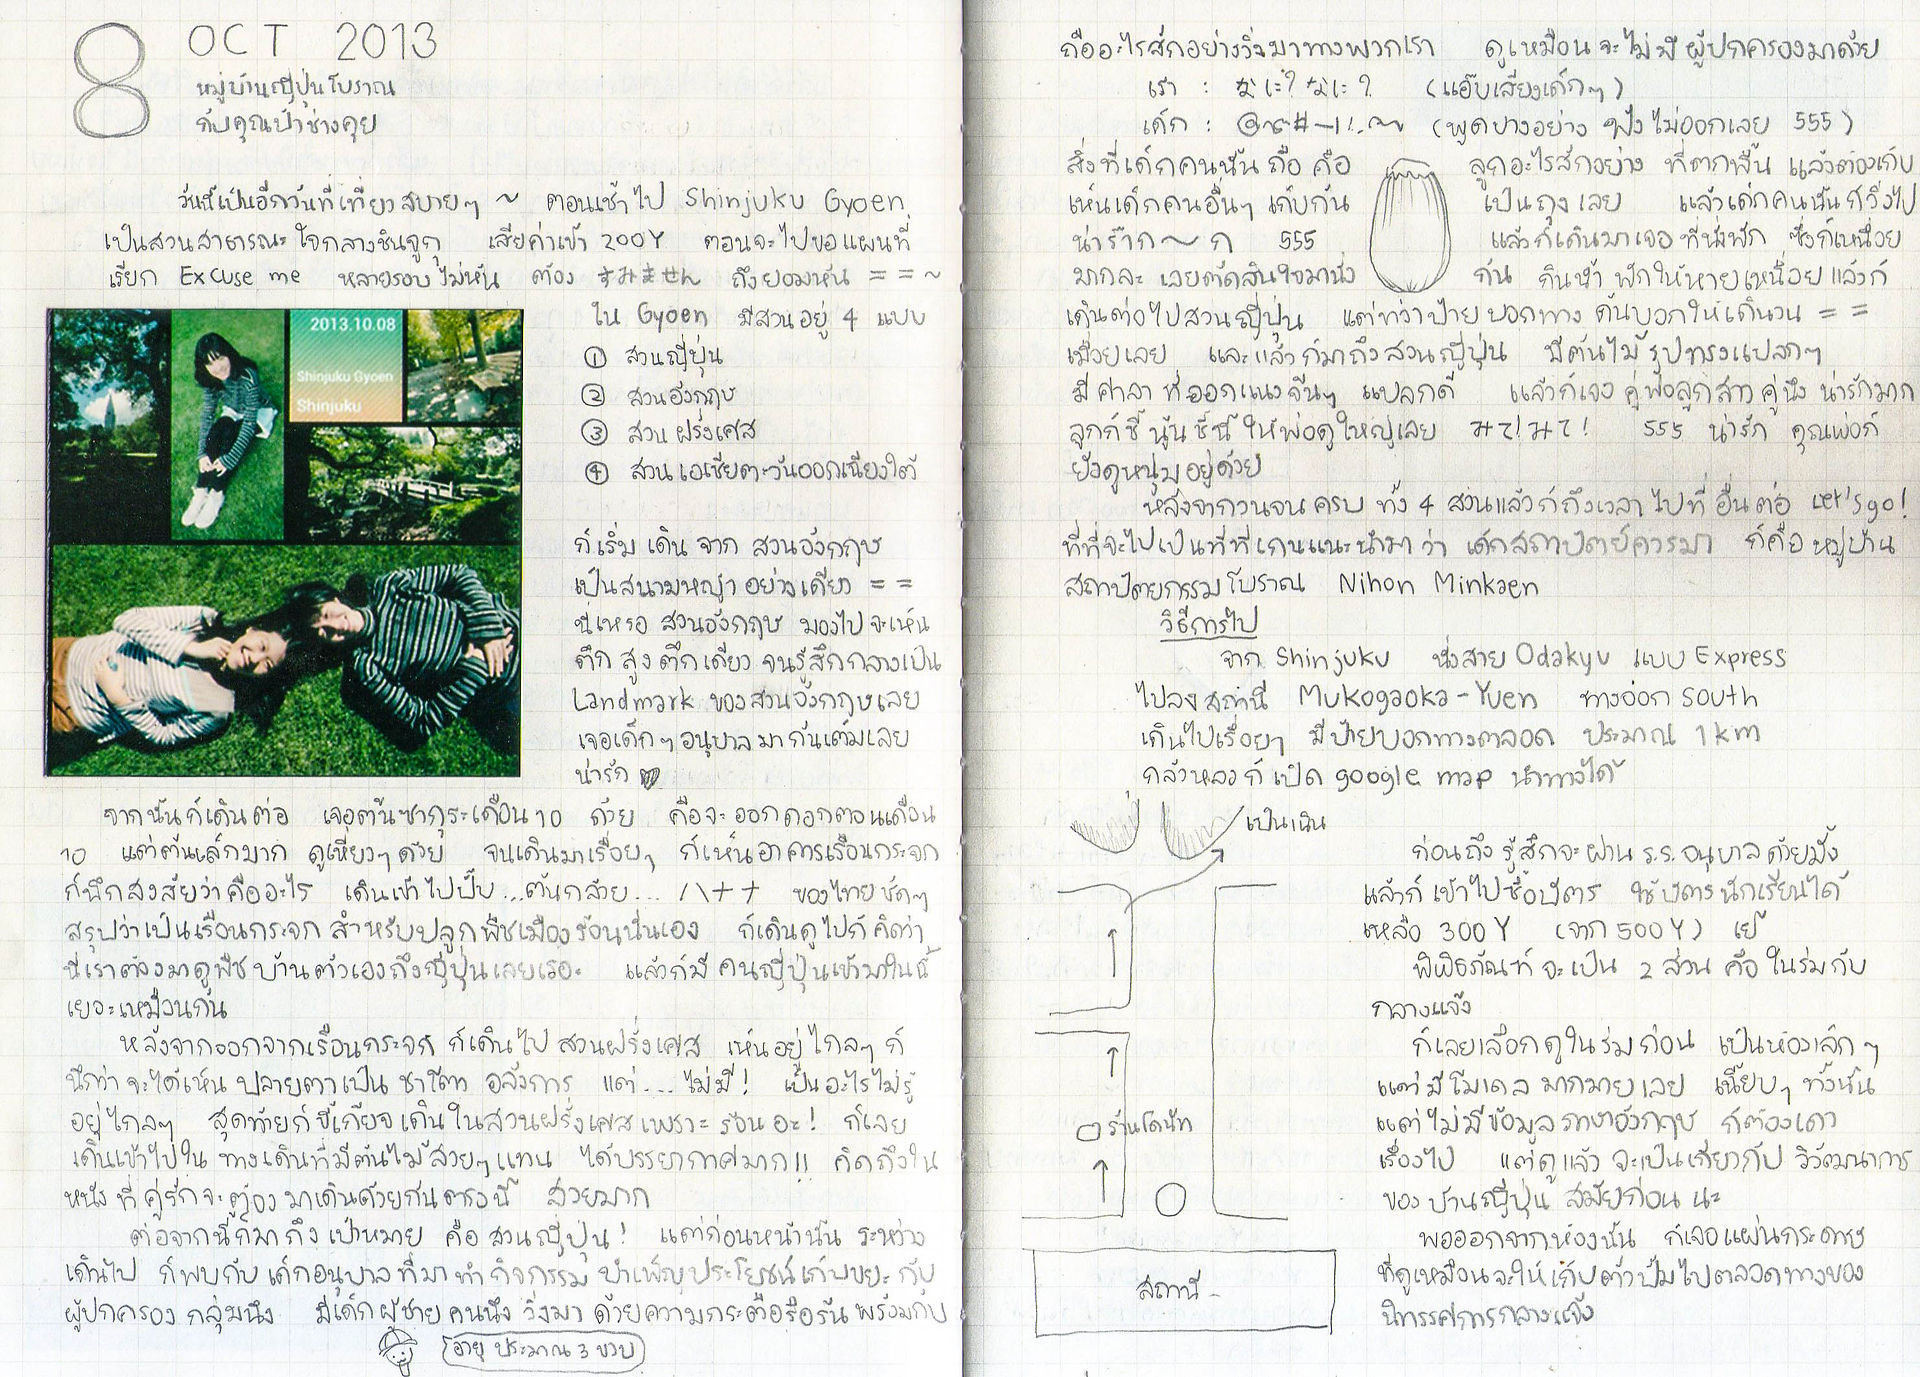 8 OCT 2013
หมู่บ้านญี่ปุ่นโบราณ
กับคุณป้าช่างคุย
วันนี้เป็นอีกวันที่เที่ยวสบายๆ ~ ตอนเช้าไป Shinjuku Gyoen
เป็นสวนสาธารณะใจกลางชินจูกุ เสียค่าเข้า 200Y ตอนจะไปขอแผนที่
เรียก Excuse me หลายรอบไม่หัน ต้อง すみません ถึงยอมหัน = = ~
2013.10.08
Shinjuku Gyoen
Shinjuku
ใน Gyoen มีสวนอยู่ 4 แบบ
① สวนญี่ปุ่น
② สวนอังกฤษ
③ สวนฝรั่งเศส
④ สวนเอเชียตะวันออกเฉียงใต้
ก็เริ่มเดินจาก สวนอังกฤษ
เป็นสนามหญ้าอย่างเดียว = =
นี่เหรอ สวนอังกฤษ มองไปจะเห็น
ตึกสูงตึกเดียว จนรู้สึกกลายเป็น
Landmark ของสวนอังกฤษเลย
เจอเด็กๆอนุบาลมากันเต็มเลย
น่ารัก
จากนั้นก็เดินต่อ เจอต้นซากุระเดือน 10 ด้วย คือจะออกดอกตอนเดือน
10 แต่ต้นเล็กมาก ดูเหี่ยวๆด้วย จนเดินมาเรื่อยๆ ก็เห็นอาคารเรือนกระจก
ก็นึกสงสัยว่าคืออะไร เดินเข้าไปปั๊บ...ต้นกล้วย... /\++ ของไทยชัดๆ
สรุปว่าเป็นเรือนกระจก สำหรับปลูกพืชเมืองร้อนนั่นเอง ก็เดินดูไปก็คิดว่า
นี่เราต้องมาดูพืชบ้านตัวเองถึงญี่ปุ่นเลยเรอะ แล้วก็มีคนญี่ปุ่นเข้ามาในนี้
เยอะเหมือนกัน
หลังจากออกจากเรือนกระจก ก็เดินไป สวนฝรั่งเศส เห็นอยู่ไกลๆ ก็
นึกว่าจะได้เห็น ปลายตาเป็น ชาโตว อลังการ แต่....ไม่มี! เป็นอะไรไม่รู้
อยู่ไกลๆ สุดท้ายก็ขี้เกียจเดินในสวนฝรั่งเศสเพราะ ร้อนอะ! ก็เลย
เดินเข้าไปใน ทางเดินที่มีต้นไม้สวยๆแทน ได้บรรยากาศมาก!! คิดถึงใน
หนังที่คู่รักจะต้องมาเดินด้วยกันตรงนี้ สวยมาก
ต่อจากนี้ก็มาถึง เป้าหมาย คือ สวนญี่ปุ่น! แต่ก่อนหน้านั้น ระหว่าง
เดินไป ก็พบกับ เด็กอนุบาลที่มาทำกิจกรรม บำเพ็ญประโยชน์เก็บขยะ กับ
ผู้ปกครอง กลุ่มนึง มีเด็กผู้ชายคนนึง วิ่งมา ด้วยความกระตือรือร้น พร้อมกับ
อายุ ประมาณ 3 ขวบ
ถืออะไรสักอย่างวิ่งมาทางพวกเรา ดูเหมือนจะไม่มีผู้ปกครองมาด้วย
เรา : なに? なに? (แอ๊บเสียงเด็กๆ)
เด็ก : @~#—!..~ (พูดบางอย่าง ฟังไม่ออกเลย 555)
สิ่งที่เด็กคนนั้น ถือ คือ ลูกอะไรสักอย่าง ที่ตกพื้น แล้วต้องเก็บ
เห็นเด็กคนอื่นๆ เก็บกัน เป็นถุงเลย แล้วเด็กคนนั้นก็วิ่งไป
น่าร้าก~ก 555 แล้วก็เดินมาเจอ ที่นั่งพัก ซึ่งก็เหนื่อย
มากละ เลยตัดสินใจมานั่ง กัน กินน้ำ พักให้หายเหนื่อย แล้วก็
เดินต่อไปสวนญี่ปุ่น แต่ทว่าป้ายบอกทาง ดันบอกให้เดินวน = =
เมื่อยเลย และแล้วก็มาถึงสวนญี่ปุ่น มีต้นไม้รูปทรงแปลกๆ
มีศาลา ที่ออกแนวจีนๆ แปลกดี แล้วก็เจอ คู่พ่อลูกสาวคู่นึง น่ารักมาก
ลูกก็ชี้นู้นชี้นี่ให้พ่อดูใหญ่เลย みて!みて! 555 น่ารัก คุณพ่อก็
ยังดูหนุ่มอยู่ด้วย
หลังจากวนจนครบ ทั้ง 4 สวนแล้วก็ถึงเวลา ไปที่อื่นต่อ Let's go!
ที่ที่จะไปเป็นที่ที่เกนแนะนำมา ว่า เด็กสถาปัตย์ควรมา ก็คือ หมู่บ้าน
สถาปัตยกรรมโบราณ Nihon Minkaen
วิธีการไป
จาก Shinjuku นั่งสาย Odakyu แบบ Express
ไปลงสถานี Mukogaoka-Yuen ทางออก South
เดินไปเรื่อยๆ มีป้ายบอกทางตลอด ประมาณ 1 km
กลัวหลงก็เปิด google map นำทางได้
เป็นเนิน
ร้านโดนัท
สถานี
ก่อนถึง รู้สึกจะผ่าน ร.ร.อนุบาล ด้วยมั้ง
แล้วก็เข้าไปซื้อบัตร ใช้บัตรนักเรียนได้
เหลือ 300Y (จาก 500Y) เย้
พิพิธภัณฑ์จะเป็น 2 ส่วน คือ ในร่มกับ
กลางแจ้ง
ก็เลยเลือกดูในร่มก่อน เป็นห้องเล็กๆ
แต่มีโมเดลมากมายเลย เนี้ยบๆ ทั้งนั้น
แต่ไม่มีข้อมูลภาษาอังกฤษ ก็ต้องเดา
เรื่องไป แต่ดูแล้ว จะเป็นเกี่ยวกับ วิวัฒนาการ
ของบ้านญี่ปุ่น สมัยก่อน นะ
พอออกจากห้องนั้น ก็เจอแผ่นกระดาษ
ที่ดูเหมือนจะให้เก็บตัวปั๊มไปตลอดทางของ
นิทรรศการกลางแจ้ง